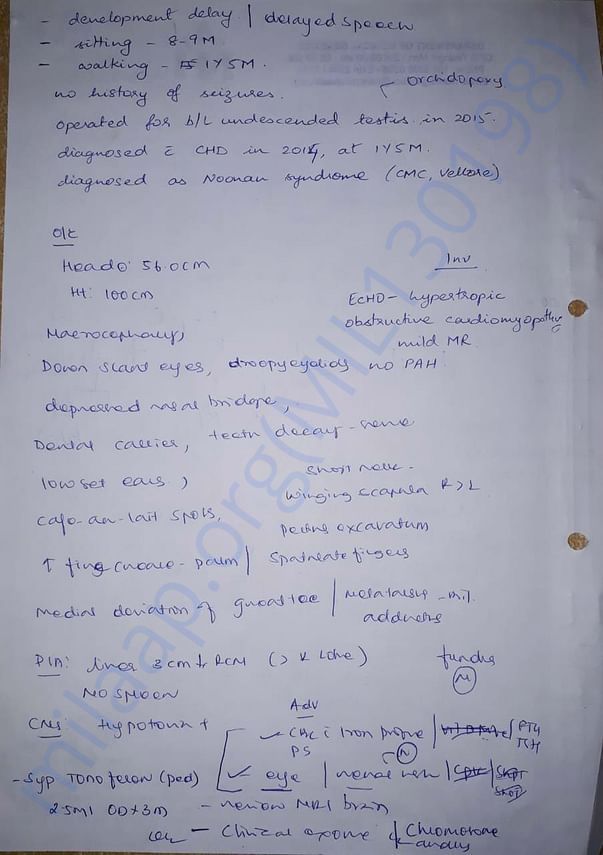 - development delay / delayed speech
- sitting - 8-9M
- walking - 1Y5M.
no history of seizures.
orchidopexy
operated for b/L undescended testis in 2015.
diagnosed c̄ CHD in 2014, at 1Y5M.
diagnosed as Noonan syndrome (CMC, Vellore)
O/E
Head O: 56.0cm
Ht: 100cm
Inv
ECHO - hypertropic
obstructive cardiomyopathy
mild MR
no PAH
Macrocephaly,
Down slant eyes, droopy eyelids
depressed nasal bridge,
Dental carries, teeth decay - severe
low set ears,
short neck -
winging scapula R>L
Cafe-au-lait spots,
pectus excavatum
↑ fing crease - palm / Spatulate fingers
Medial deviation of great toe / Metatarsus - mil.
adductus
P/A: liver 3cm ↓ RCM
NO SPLEEN
fundus
(N)
CNS: Hypotonia +
Adv
CBC c̄ Iron profile / PTH
TSH
PS
(N)
- Syp TONOFERON (ped)
eye / renal
2.5ml OD x 3m
- review MRI brain
- Clinical exome & Chromosome
analysis
milaap.org(MIL130198)